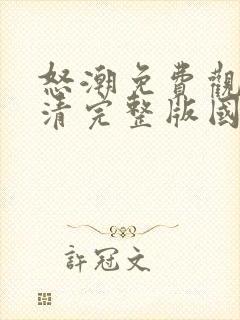 怒潮免費觀
清完整版國
許冠文